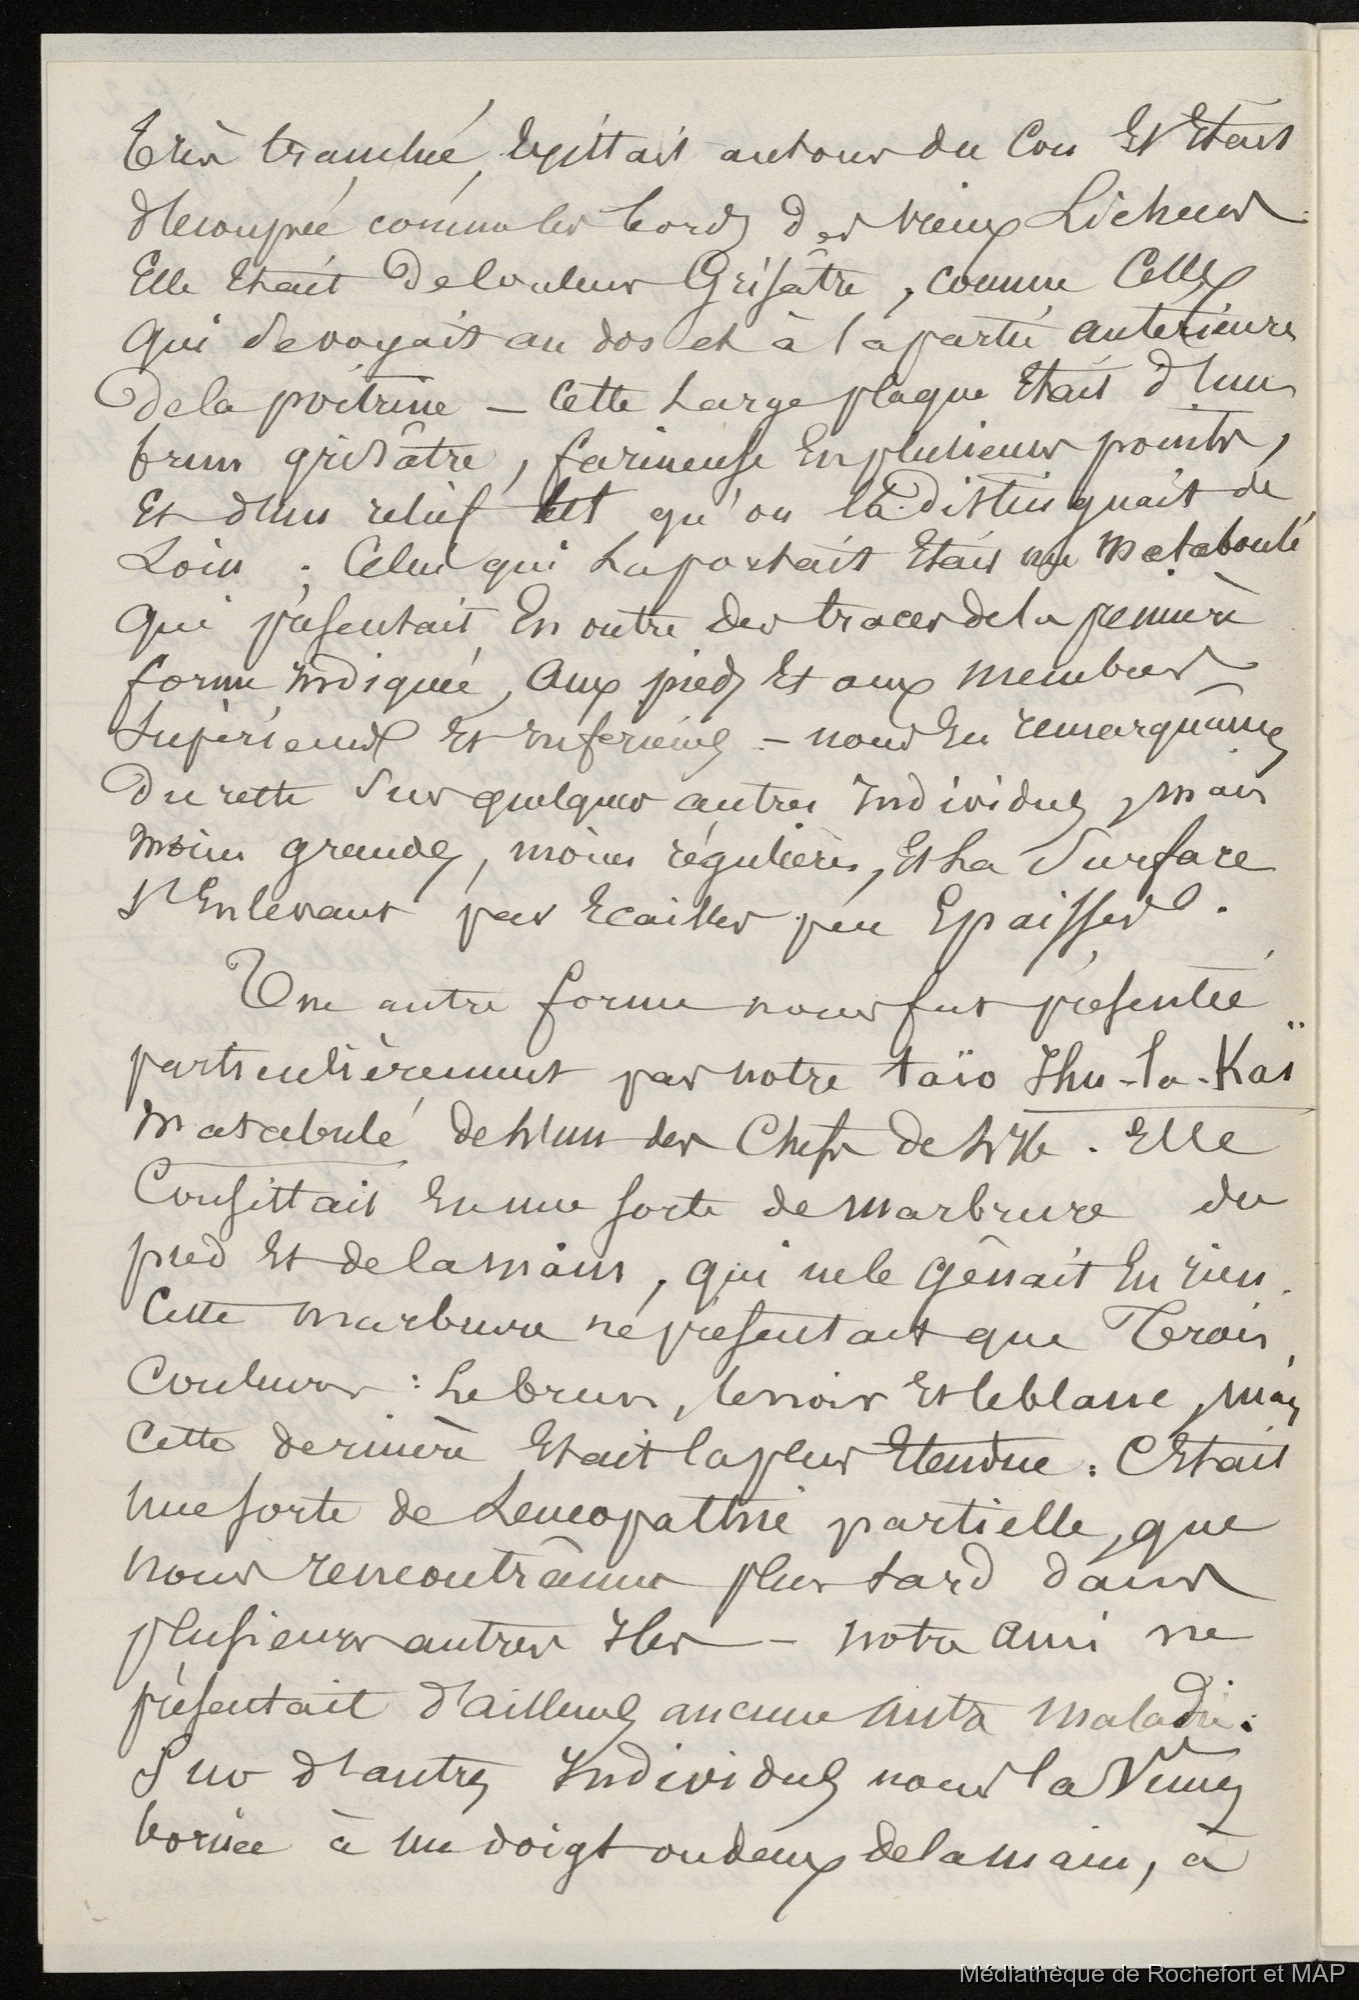 très tranchée, existait autour du cou et était
découpée comme les bords des vieux Lichens.
Elle était de couleur Grisâtre, comme Celle
qui se voyait au dos et à la partie antérieure
de la poitrine — Cette Large plaque était d'un
brun grisâtre, farineuse En plusieurs points,
et d'un relief tel qu'on la distinguait de
Loin ; Celui qui La portait était un Mataboulé
qui présentait, En outre des traces de la première
forme indiquée, aux pieds Et aux membres
supérieurs Et inférieurs. — nous En remarquâmes
du reste sur quelques autres individus, mais
moins grandes, moins régulières, Et La surface
s'Enlevant par Ecailles peu Epaisses.
Une autre forme nous fut présentée
particulièrement par notre taïo Thu-ta-Kaï
Matabulé de l'un des Chefs de l'île. Elle
Consistait En une sorte de marbrure du
pied Et de la main, qui ne le gênait En rien.
Cette marbrure ne présentait que Trois
Couleurs : Le brun, le noir Et le blanc, mais
cette dernière Etait la plus Etendue : C'Etait
une sorte de Leucopathie partielle, que
nous rencontrâmes plus tard dans
plusieurs autres Iles — notre ami ne
présentait d'ailleurs aucune autre maladie.
Sur d'autres individus nous la Vîmes
bornée à un doigt ou deux de la main, à
Médiathèque de Rochefort et MAP